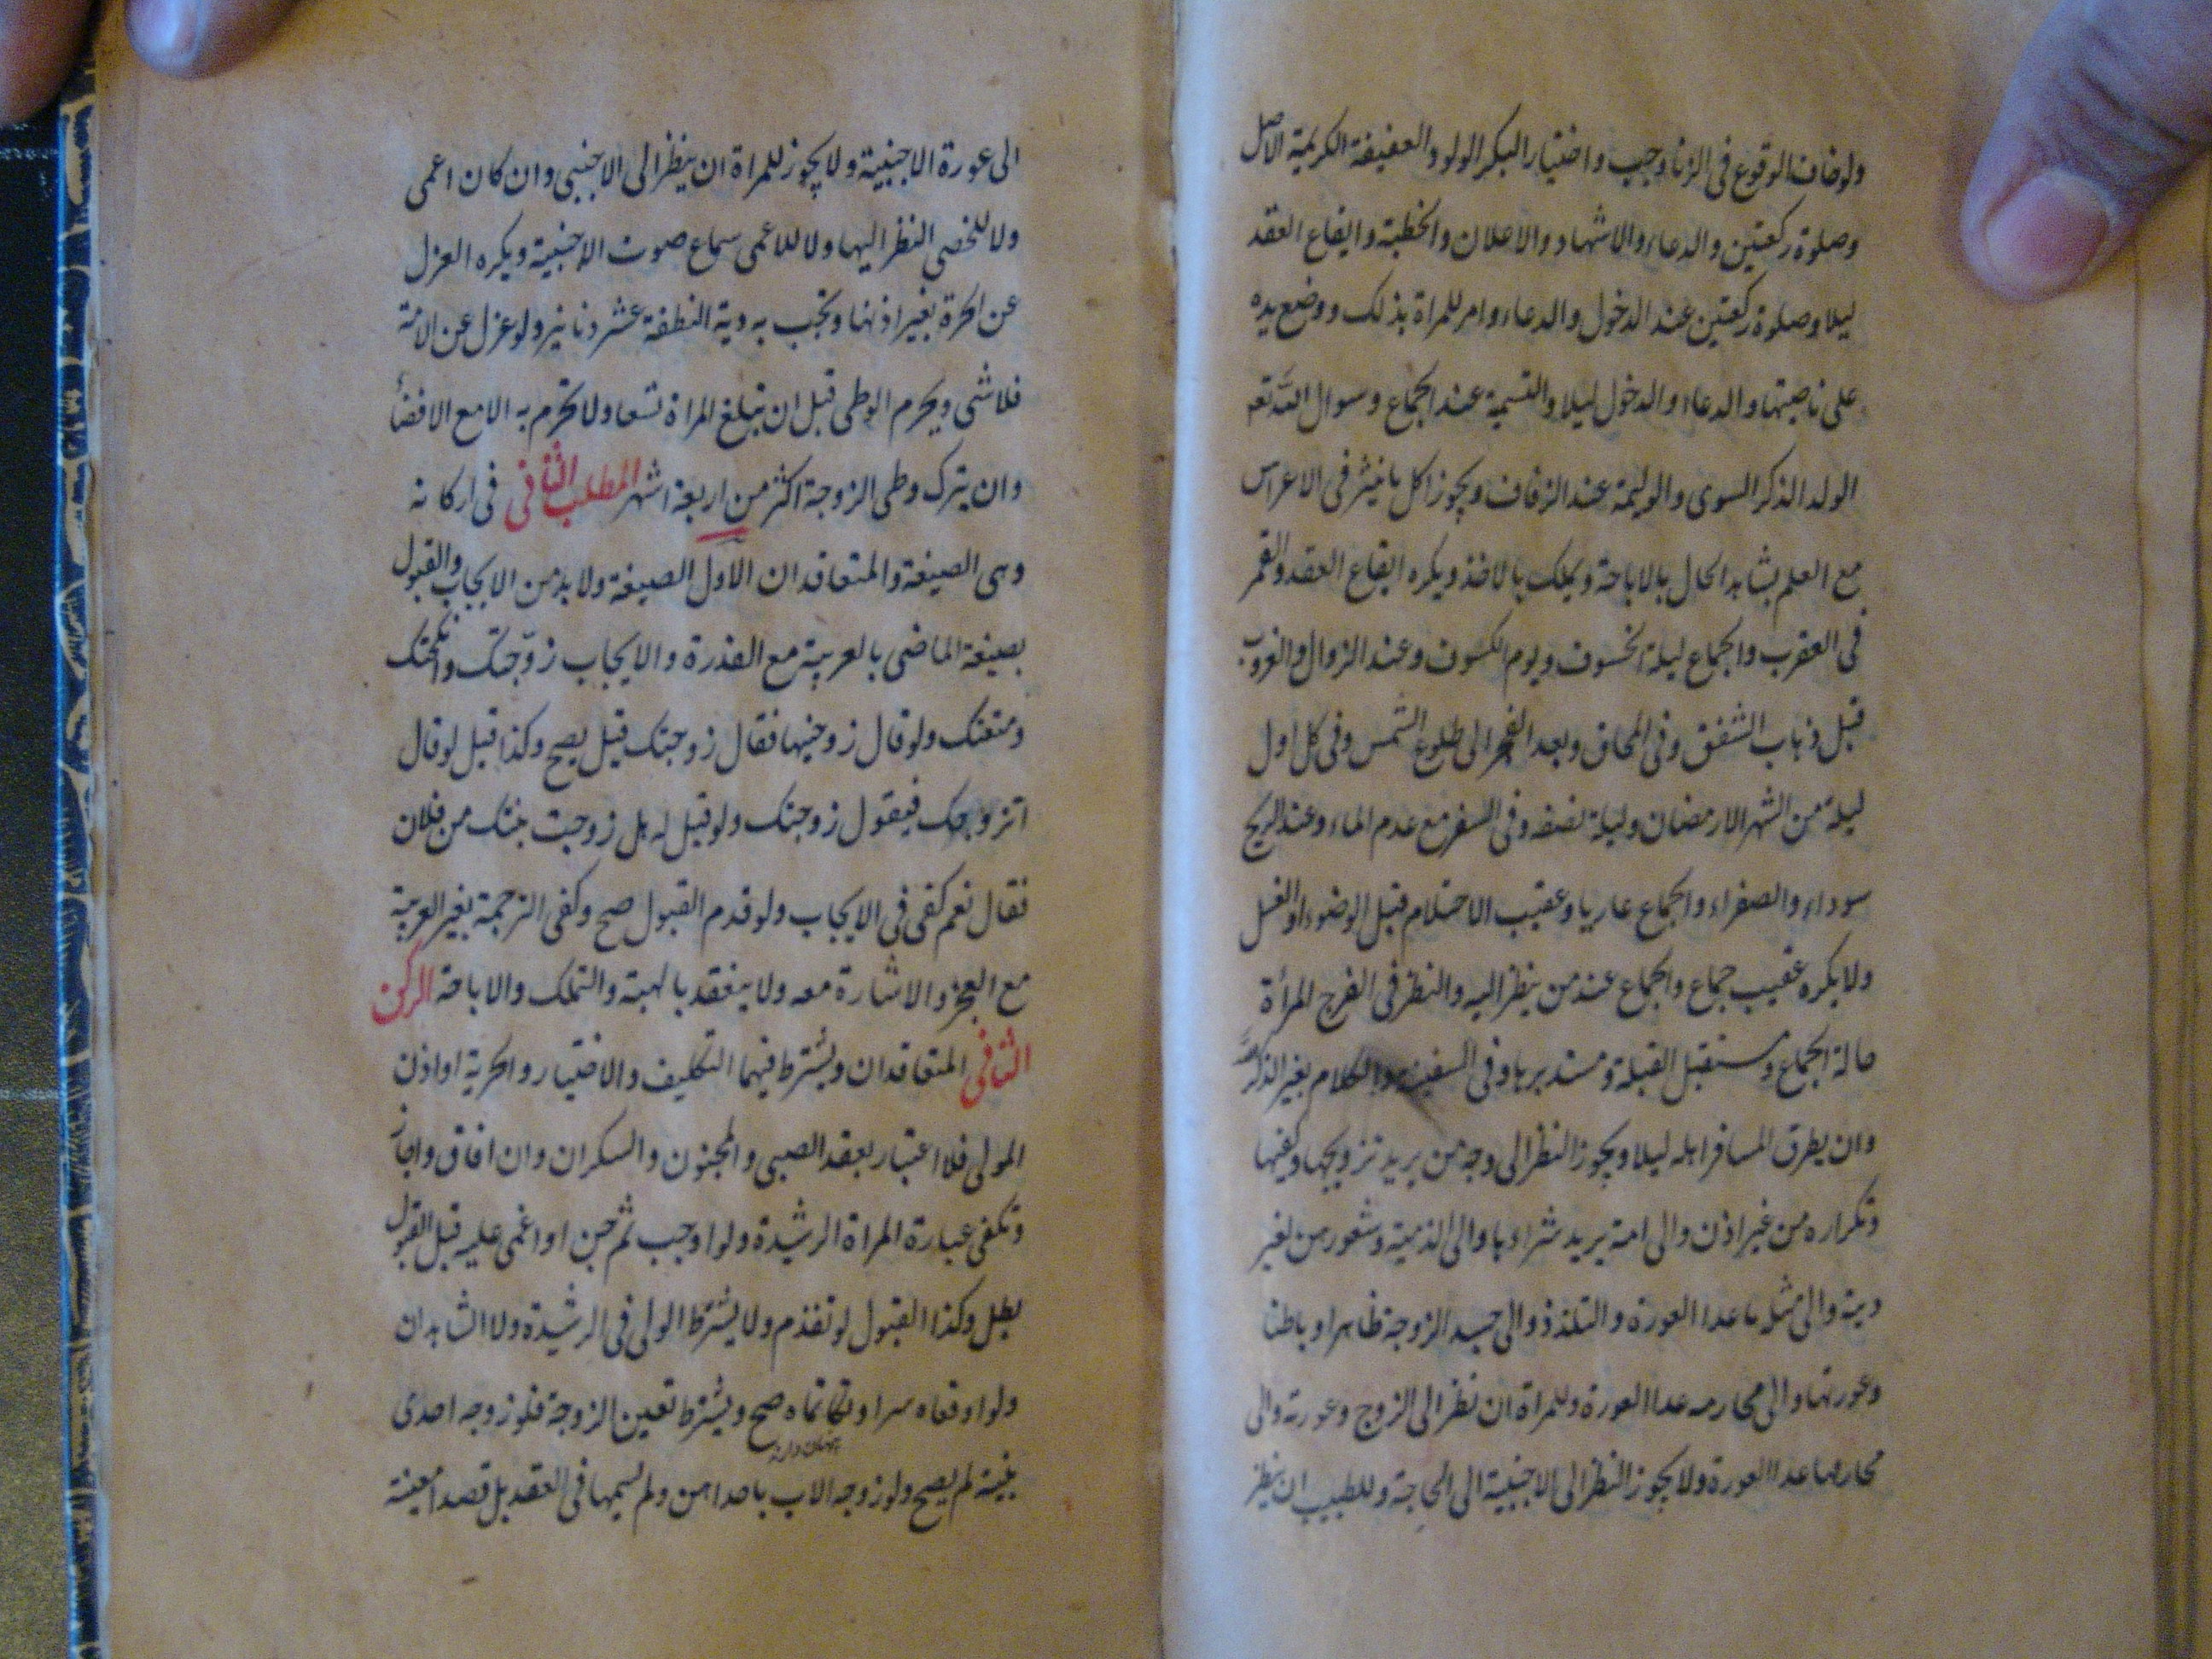 ولو خاف الوقوع فى الزنا وجب واختيار البكر الولود العفيفة الكريمة الاصل
وصلوة ركعتين والدعاء والاشهاد والاعلان والخطبة وايقاع العقد
ليلا وصلوة ركعتين عند الدخول والدعاء وامر المراة بذلك ووضع يده
على ناصيتها والدعاء والدخول ليلا والتسمية عند الجماع وسوال الله تعه
الولد الذكر السوى والوليمة عند الزفاف ويجوز اكل ما ينثر فى الاعراس
مع العلم بشاهد الحال بالاباحة ويملك بالاخذ ويكره ايقاع العقد والقمر
فى العقرب والجماع ليلة الخسوف ويوم الكسوف وعند الزوال والغروب
قبل ذهاب الشفق وفى المحاق وبعد الفجر الى طلوع الشمس وفى كل اول
ليلة من الشهر الا رمضان وليلة نصفه وفى السفر مع عدم الماء وعند الريح
سوداء والصفراء والجماع عاريا وعقيب الاحتلام قبل الوضوء او الغسل
ولا يكره عقيب جماع والجماع عند من ينظر اليه والنظر فى الفرج المرأة
حالة الجماع ومستقبل القبلة ومستدبرها وفى السفينة والكلام بغير الذكر
وان يطرق المسافر اهله ليلا ويجوز النظر الى وجه من يريد تزويجها وكفيها
وتكراره من غير اذن والى امة يريد شراءها والى الذمية وشعورهن لغير
ريبة والى مثله ما عدا العورة والتلذذ والى جسد الزوجة ظاهرا وباطنا
وعورتها والى محارمه عدا العورة وللمراة ان تنظر الى الزوج وعورته والى
محارمها عدا العورة ولا يجوز النظر الى الاجنبية الى الحاجة وللطبيب ان ينظر
الى عورة الاجنبية ولا يجوز للمراة ان ينظر الى الاجنبى وان كان اعمى
ولا للخصى النظر اليها ولا للاعمى سماع صوت الاجنبية ويكره العزل
عن الحرة بغير اذنها وتجب به دية النطفة عشر دنانير ولو عزل عن الامة
فلا شى ويحرم الوطى قبل ان تبلغ المراة تسعا ولا تحرم به الا مع الافضأ
وان يترك وطى الزوجة اكثر من اربعة اشهر المطلب الثانى فى اركانه
وهى الصيغة والمتعاقدان الاول الصيغة ولا بد من الايجاب والقبول
بصيغة الماضى بالعربية مع القدرة والايجاب زوّجتك وانكحتك
ومتعتك ولو قال زوجنيها فقال زوجتك قيل يصح وكذا قيل لو قال
اتزوجك فيقول زوجتك ولو قيل له هل زوجت بنتك من فلان
فقال نعم كفى فى الايجاب ولو قدم القبول صح وكفى الترجمة بغير العربية
مع العجز والاشارة معه ولا ينعقد بالهبة والتملك والاباحة الركن
الثانى المتعاقدان ويشترط فيهما التكليف والاختيار والحرية او اذن
المولى فلا اعتبار بعقد الصبى والمجنون والسكران وان افاق واجاز
وتكفى عبارة المراة الرشيدة ولو اوجب ثم جن او اغمى عليه قبل القبول
بطل وكذا القبول لو تقدم ولا يشترط الولى فى الرشيدة ولا الشاهدان
ولو اوقعاه سرا وتكاتماه صح ويشترط تعين الزوجة فلو زوجه احدى
بنيته لم يصح ولو زوجه الاب باحداهن ولم يسمها فى العقد بل قصدا معينة